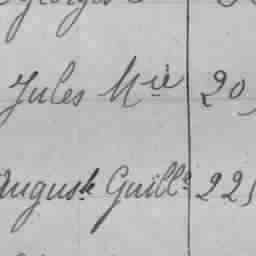 Jules Mie 20
Auguste Guille 22